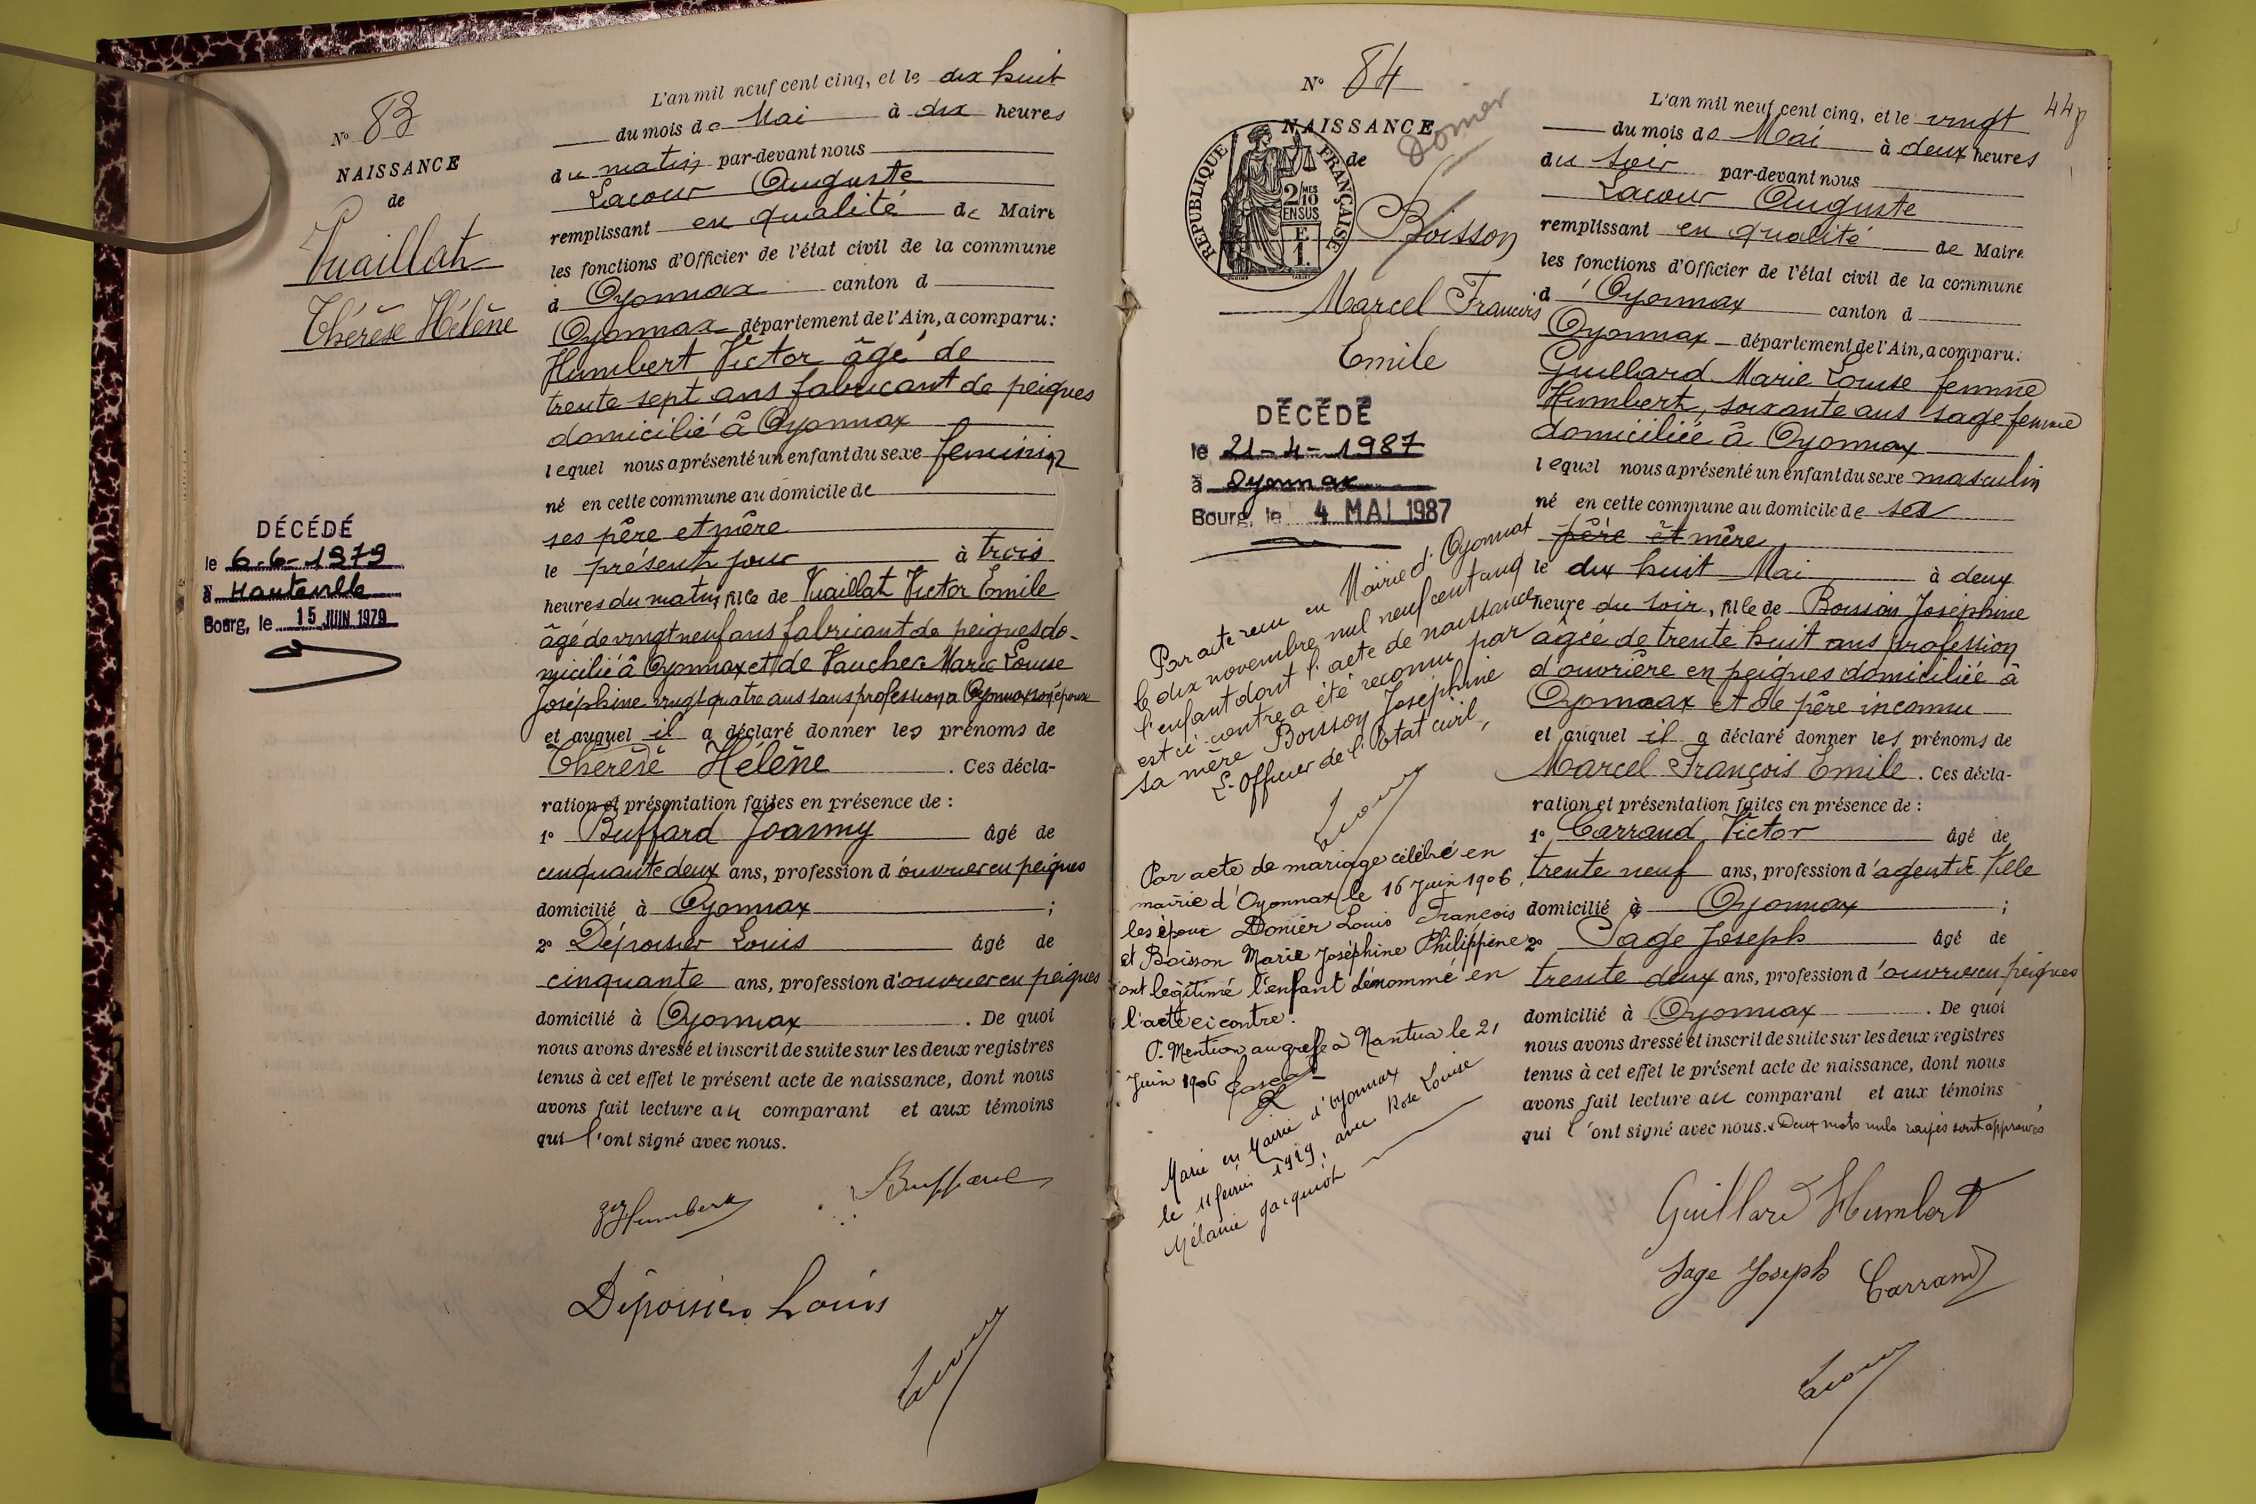 N° 83
NAISSANCE
de
Vuaillat
Thérèse Hélène
DÉCÉDÉ
le 6-6-1979
à Hauteville
Bourg, le 15 JUIN 1979
L'an mil neuf cent cinq, et le dix huit
du mois de Mai à dix heures
du matin par-devant nous
Lacour Auguste
remplissant en qualité de Maire
les fonctions d'Officier de l'état civil de la commune
d Oyonnax canton d
Oyonnax département de l'Ain, a comparu:
Humbert Victor âgé de
trente sept ans fabricant de peignes
domicilié à Oyonnax
lequel nous a présenté un enfant du sexe feminin
né en cette commune au domicile de
ses père et mère
le présent jour à trois
heures du matin, fille de Vuaillat Victor Emile
âgé de vingt neuf ans fabricant de peignes do-
micilié à Oyonnax et de Vaucher Marie Louise
Joséphine vingt quatre ans sans profession à Oyonnax son épouse
et auquel il a déclaré donner les prénoms de
Thérèse Hélène . Ces décla-
ration et présentation faites en présence de :
1° Buffard Joanny âgé de
cinquante deux ans, profession d'ouvrier en peignes
domicilié à Oyonnax ;
2° Déposier Louis âgé de
cinquante ans, profession d'ouvrier en peignes
domicilié à Oyonnax . De quoi
nous avons dressé et inscrit de suite sur les deux registres
tenus à cet effet le présent acte de naissance, dont nous
avons fait lecture au comparant et aux témoins
qui l'ont signé avec nous.
Humbert Buffard
Déposier Louis
Lacour
N° 84
NAISSANCE
de
Donier
RÉPUBLIQUE FRANÇAISE
2/10 MES
EN SUS
E
1.
Boisson
Marcel Francois
Emile
DÉCÉDÉ
le 21-4-1987
à Oyonnax
Bourg, le 4 MAI 1987
Par acte reçu en Mairie d'Oyonnax
le dix novembre mil neuf cent cinq
l'enfant dont l'acte de naissance
est ci-contre a été reconnu par
sa mère Boisson Joséphine
L'Officier de l'Etat civil,
Lacour
Par acte de mariage célébré en
mairie d'Oyonnax le 16 Juin 1906,
les époux Donier Louis François
et Boisson Marie Joséphine Philippine
ont légitimé l'enfant dénommé en
l'acte ci contre.
P. Mention au greffe à Nantua le 21
Juin 1906
Marié en Mairie d'Oyonnax
le 11 février 1929, avec Rose Louise
Mélanie Jacquiot
44
L'an mil neuf cent cinq, et le vingt
du mois de Mai à deux heures
du soir par-devant nous
Lacour Auguste
remplissant en qualité de Maire
les fonctions d'Officier de l'état civil de la commune
d'Oyonnax canton d
Oyonnax département de l'Ain, a comparu:
Guillard Marie Louise femme
Humbert, soixante ans sage femme
domiciliée à Oyonnax
lequel nous a présenté un enfant du sexe masculin
né en cette commune au domicile de sa
père et mère
le dix huit Mai à deux
heure du soir, fils de Boisson Joséphine
âgée de trente huit ans profession
d'ouvrière en peignes domiciliée à
Oyonnax et de père inconnu
et auquel il a déclaré donner les prénoms de
Marcel François Emile . Ces décla-
ration et présentation faites en présence de :
1° Carrand Victor âgé de
trente neuf ans, profession d'agent de Ville
domicilié à Oyonnax ;
2° Sage Joseph âgé de
trente deux ans, profession d'ouvrier en peignes
domicilié à Oyonnax . De quoi
nous avons dressé et inscrit de suite sur les deux registres
tenus à cet effet le présent acte de naissance, dont nous
avons fait lecture au comparant et aux témoins
qui l'ont signé avec nous. Deux mots nuls rayés sont approuvés
Guillard Humbert
Sage Joseph Carrand
Lacour